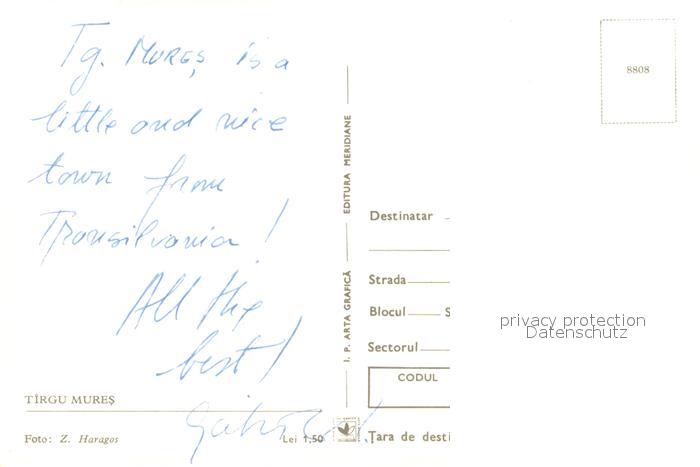 Tg. MUREȘ is a
little and nice
town from
Transilvania!
All the
best!
TÎRGU MUREȘ
Foto: Z. Haragos
Lei 1,50
I. P. ARTA GRAFICĂ
EDITURA MERIDIANE
8808
Destinatar
Strada
Blocul S
Sectorul
CODUL
Țara de desti
privacy protection
Datenschutz